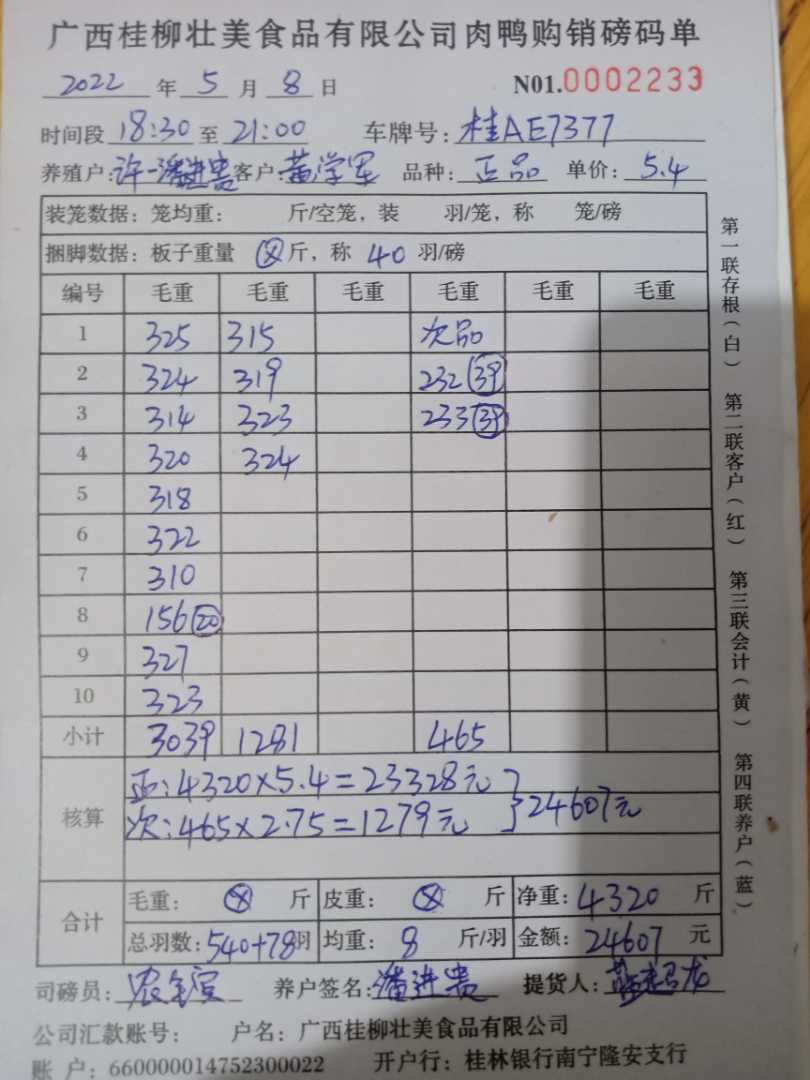 广西桂柳壮美食品有限公司肉鸭购销磅码单
2022 年 5 月 8 日 N01.0002233
时间段 18:30 至 21:00 车牌号: 桂AE7377
养殖户: 许一潘进贵 客户: 黄学军 品种: 正品 单价: 5.4
装笼数据: 笼均重: 斤/空笼, 装 羽/笼, 称 笼/磅
捆脚数据: 板子重量 ⊗ 斤, 称 40 羽/磅
编号 毛重 毛重 毛重 毛重 毛重 毛重
1 325 315 次品
2 324 319 232 (39)
3 314 323 233 (39)
4 320 324
5 318
6 322
7 310
8 156 (20)
9 327
10 323
小计 3039 1281 465
核算 正:4320×5.4=23328元
次:465×2.75=1279元 } 24607元
合计 毛重: ⊗ 斤 皮重: ⊗ 斤 净重: 4320 斤
总羽数: 540+78 羽 均重: 8 斤/羽 金额: 24607 元
司磅员: 养户签名: 潘进贵 提货人:
公司汇款账号: 户名: 广西桂柳壮美食品有限公司
账 户: 660000014752300022 开户行: 桂林银行南宁隆安支行
第一联存根(白) 第二联客户(红) 第三联会计(黄) 第四联养户(蓝)